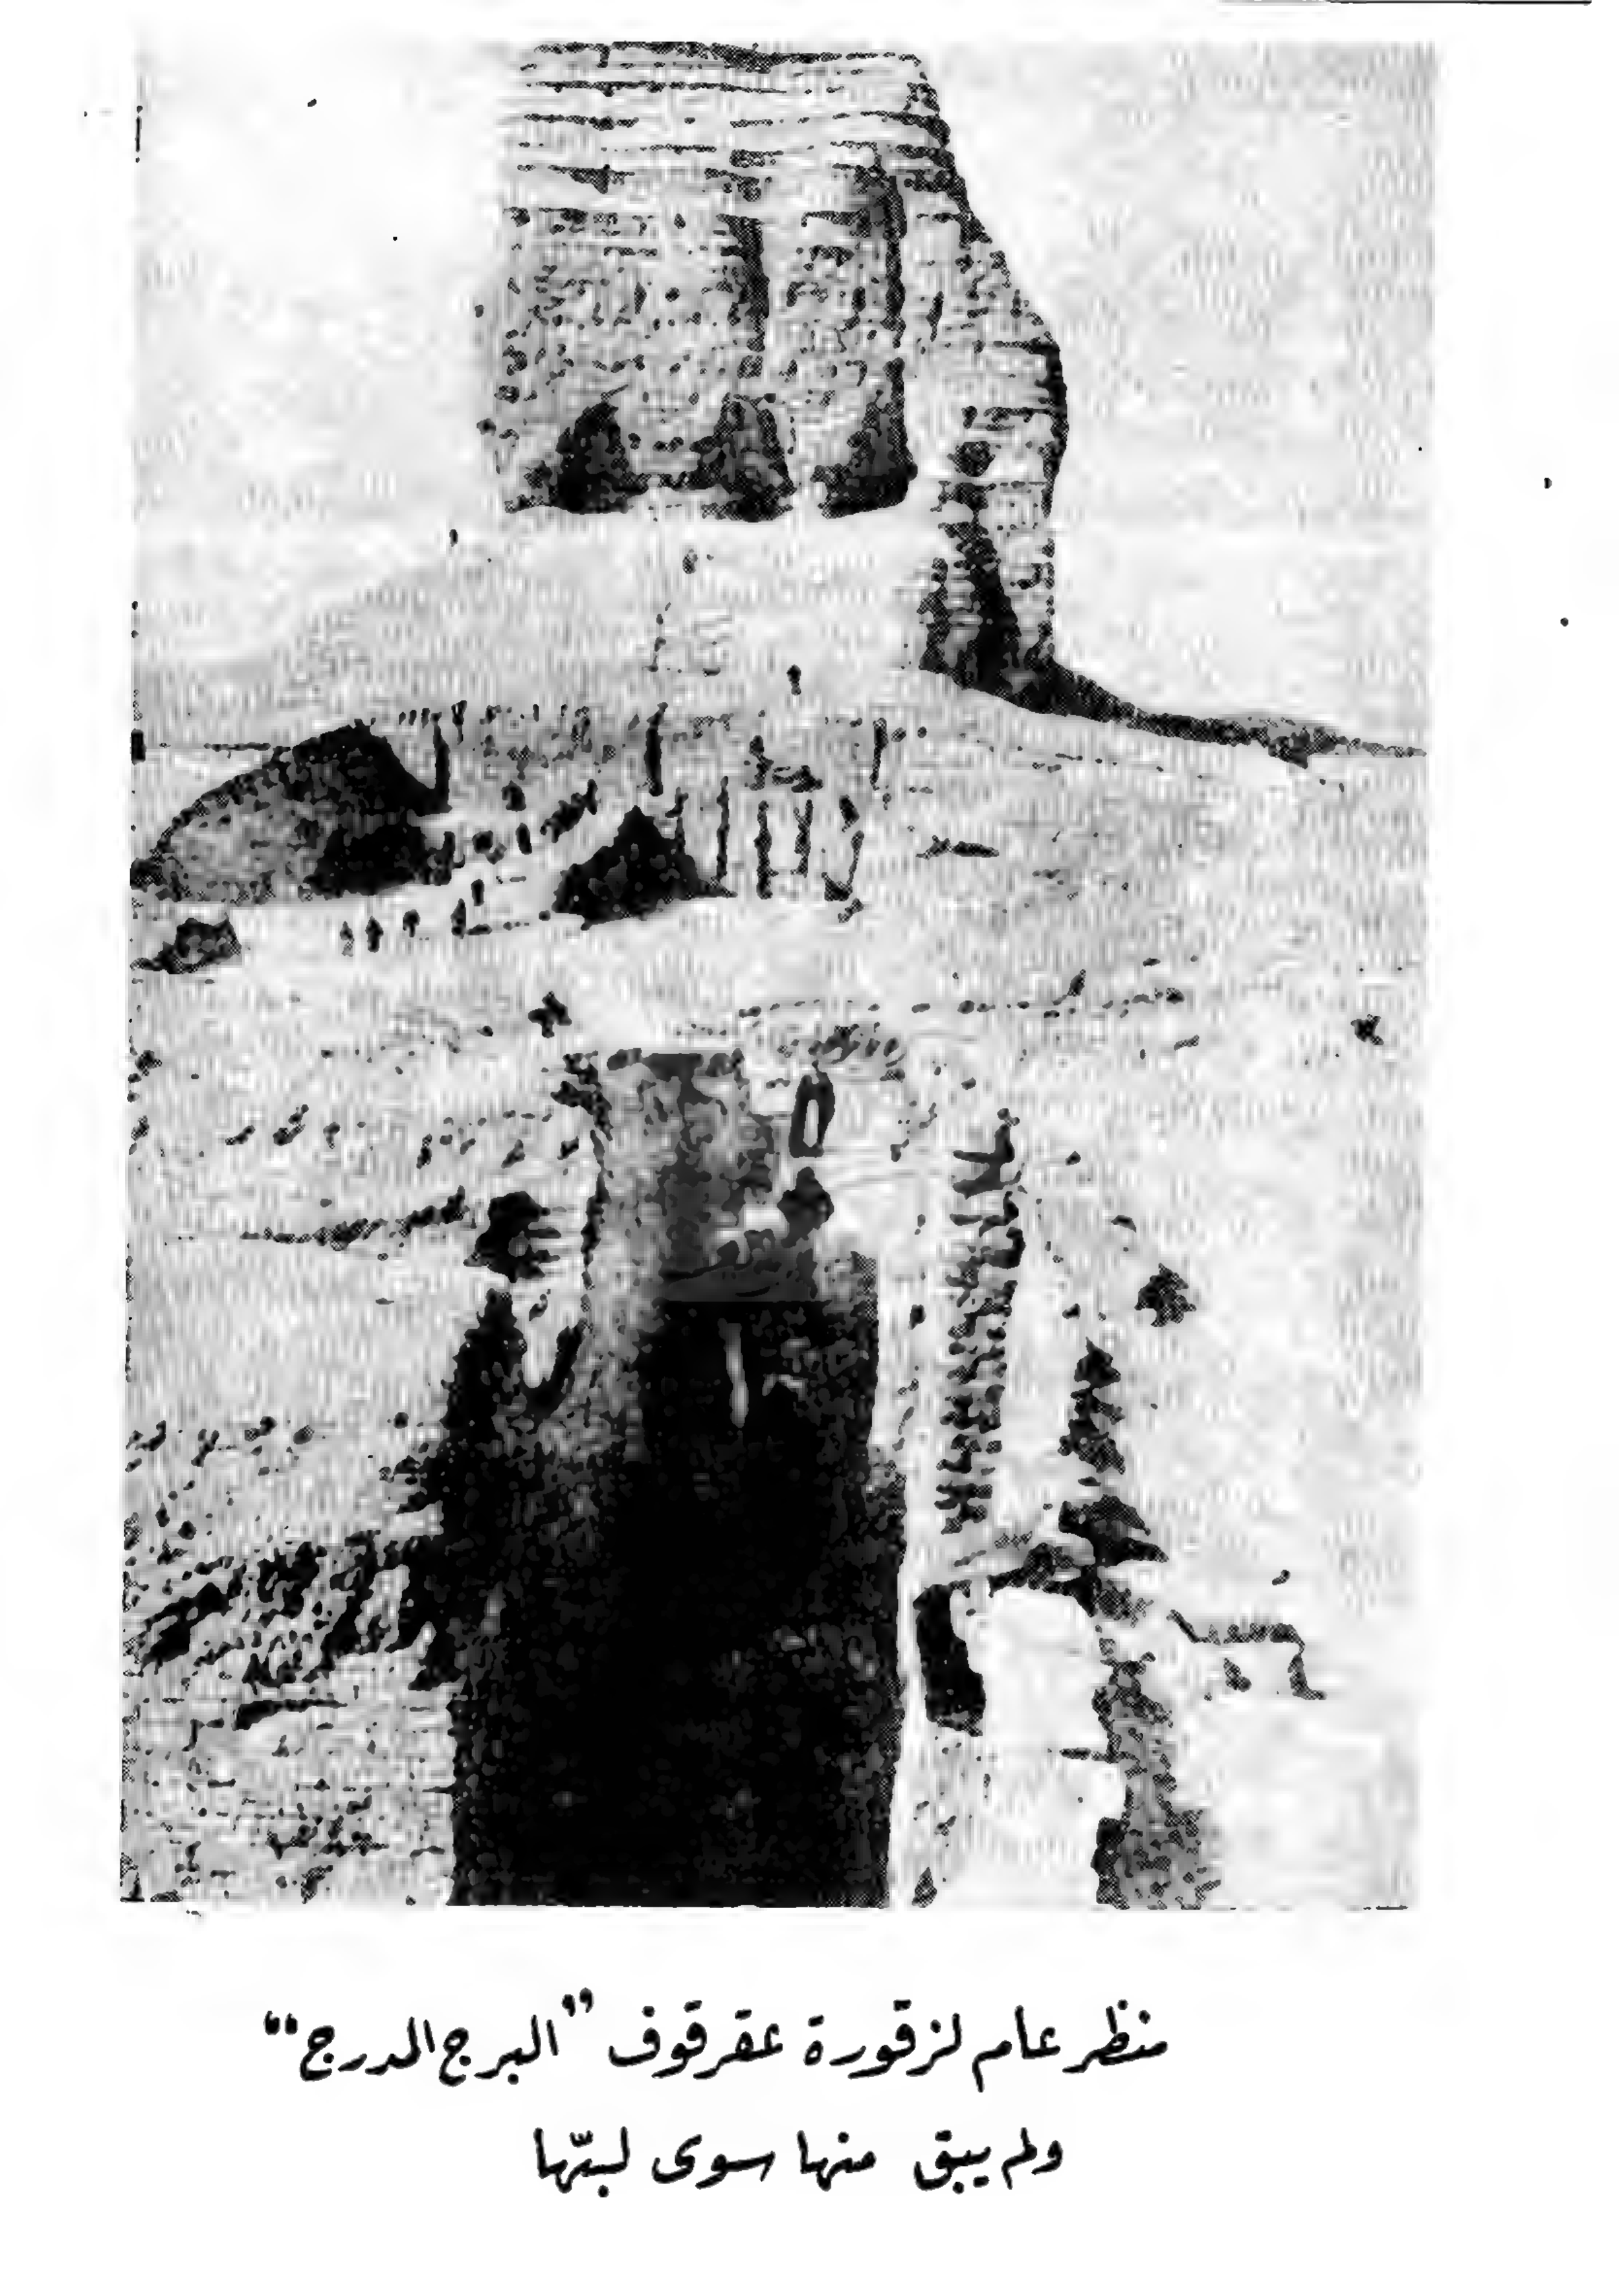 منظر عام لزقورة عقرقوف "البرج المدرج"
ولم يبق منها سوى لبّها